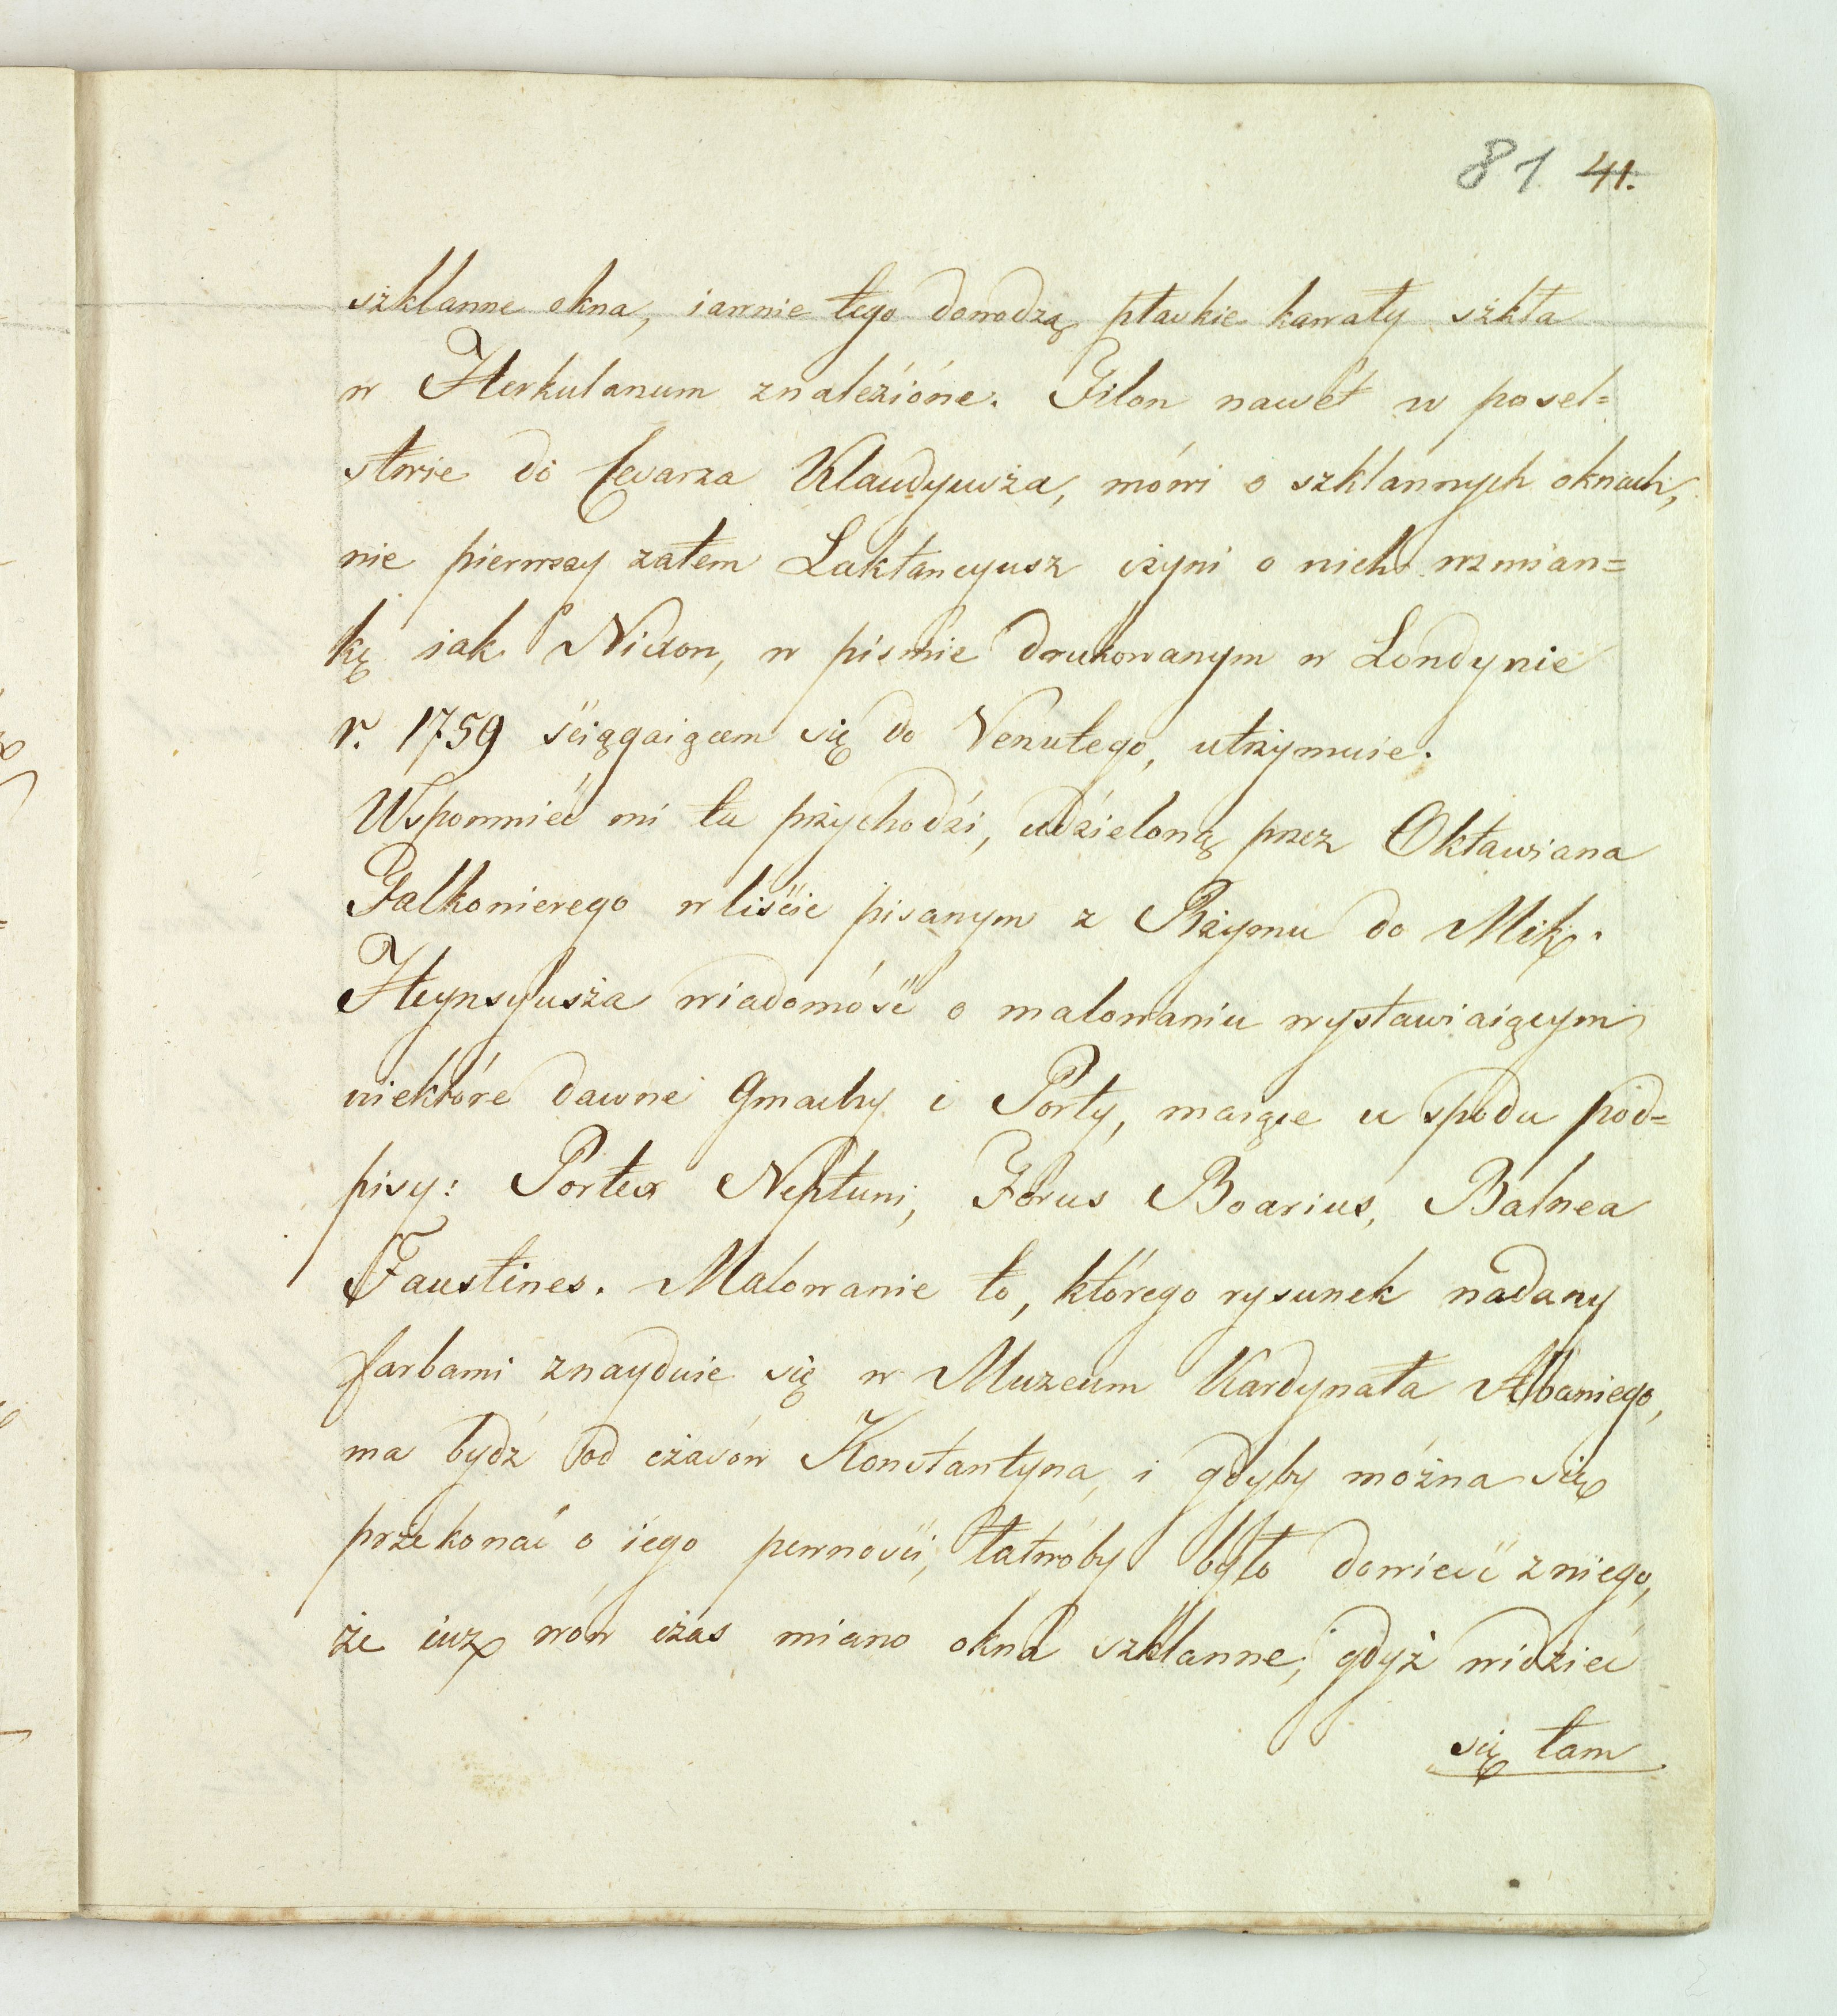 81 41.
szklanne okna, iawnie tego dowodzą płaskie kawały szkła
w Herkulanum znaleźióne. Filon nawet w posel=
stwie do Cesarza Klaudyusza, mówi o szklannych oknach,
nie pierwszy zatem Laktancyusz czyni o nich wzmian=
kę iak Nixon, w piśmie drukowanym w Londynie
r. 1759 ściągaiącem się do Venutego, utrzymuie.
Wspomnieć mi tu przychodźi, udźieloną przez Oktawiana
Falkonierego w liście pisanym z Rzymu do Mik.
Heynsyusza wiadomość o malowaniu wystawiaiącym
niektóre dawne Gmachy i Porty, maiące u spodu pod=
pisy: Portex Neptuni, Forus Boarius, Balnea
Faustines. Malowanie to, którego rysunek nadany
farbami znayduie się w Muzeum Kardynała Albaniego,
ma bydź od czasów Konstantyna, i gdyby można się
przekonać o iego pewności, łatwoby było dowieść z niego,
że iuż wów czas miano okna szklanne, gdyż widzieć
się tam